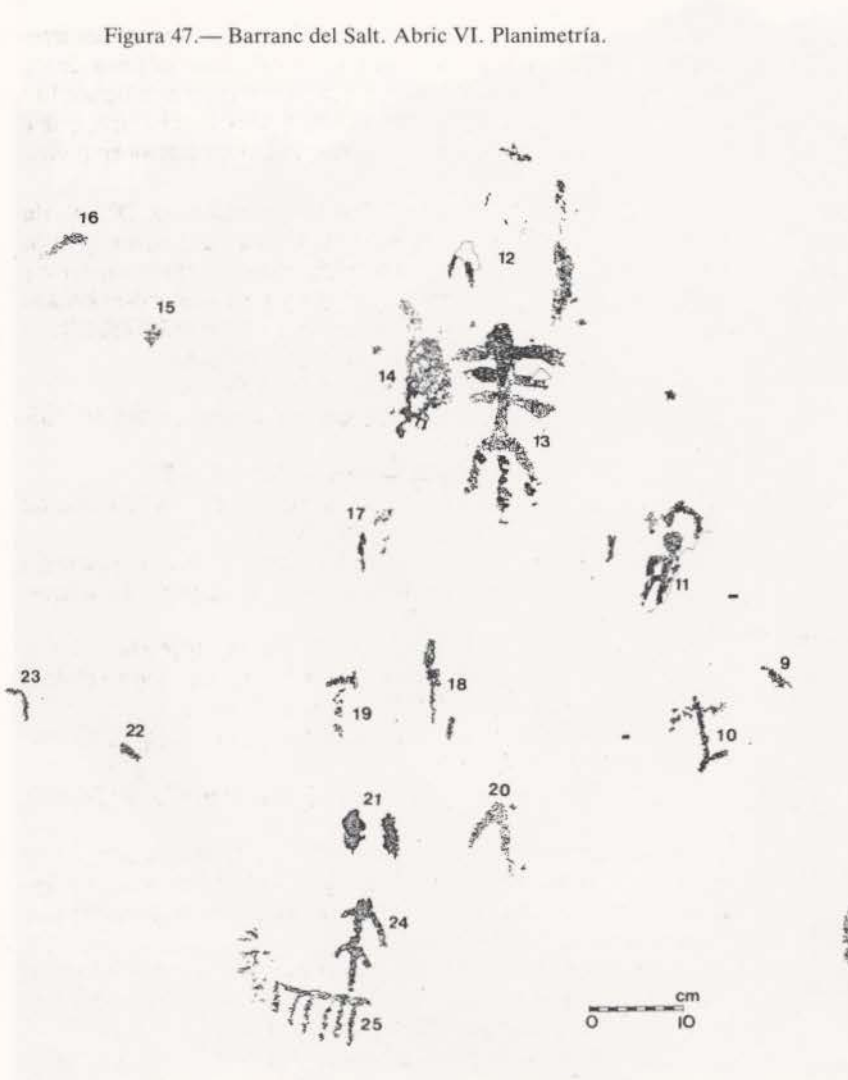 Figura 47.— Barranc del Salt. Abric VI. Planimetría.
16
12
15
14
13
17
11
23
18
9
19
22
10
21
20
24
25
cm
0 10